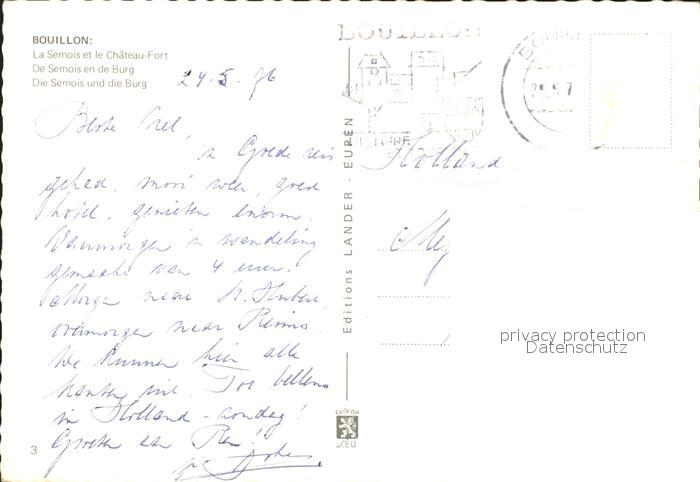 BOUILLON:
La Semois et le Château-Fort
De Semois en de Burg
Die Semois und die Burg
24-5-76
Beste
'n Goede reis
gehad, mooi weer, goed
hotel, genieten enorm.
Vanmorgen 'n wandeling
gemaakt van 4 uur.
Morgen naar St. Hubert,
overmorgen naar Reims.
We kunnen hier alle
kanten uit. Tot bellens
in Holland - zondag!
Groeten aan
3
Editions LANDER - EUPEN
BOUILLON
Holland
Mej
privacy protection
Datenschutz